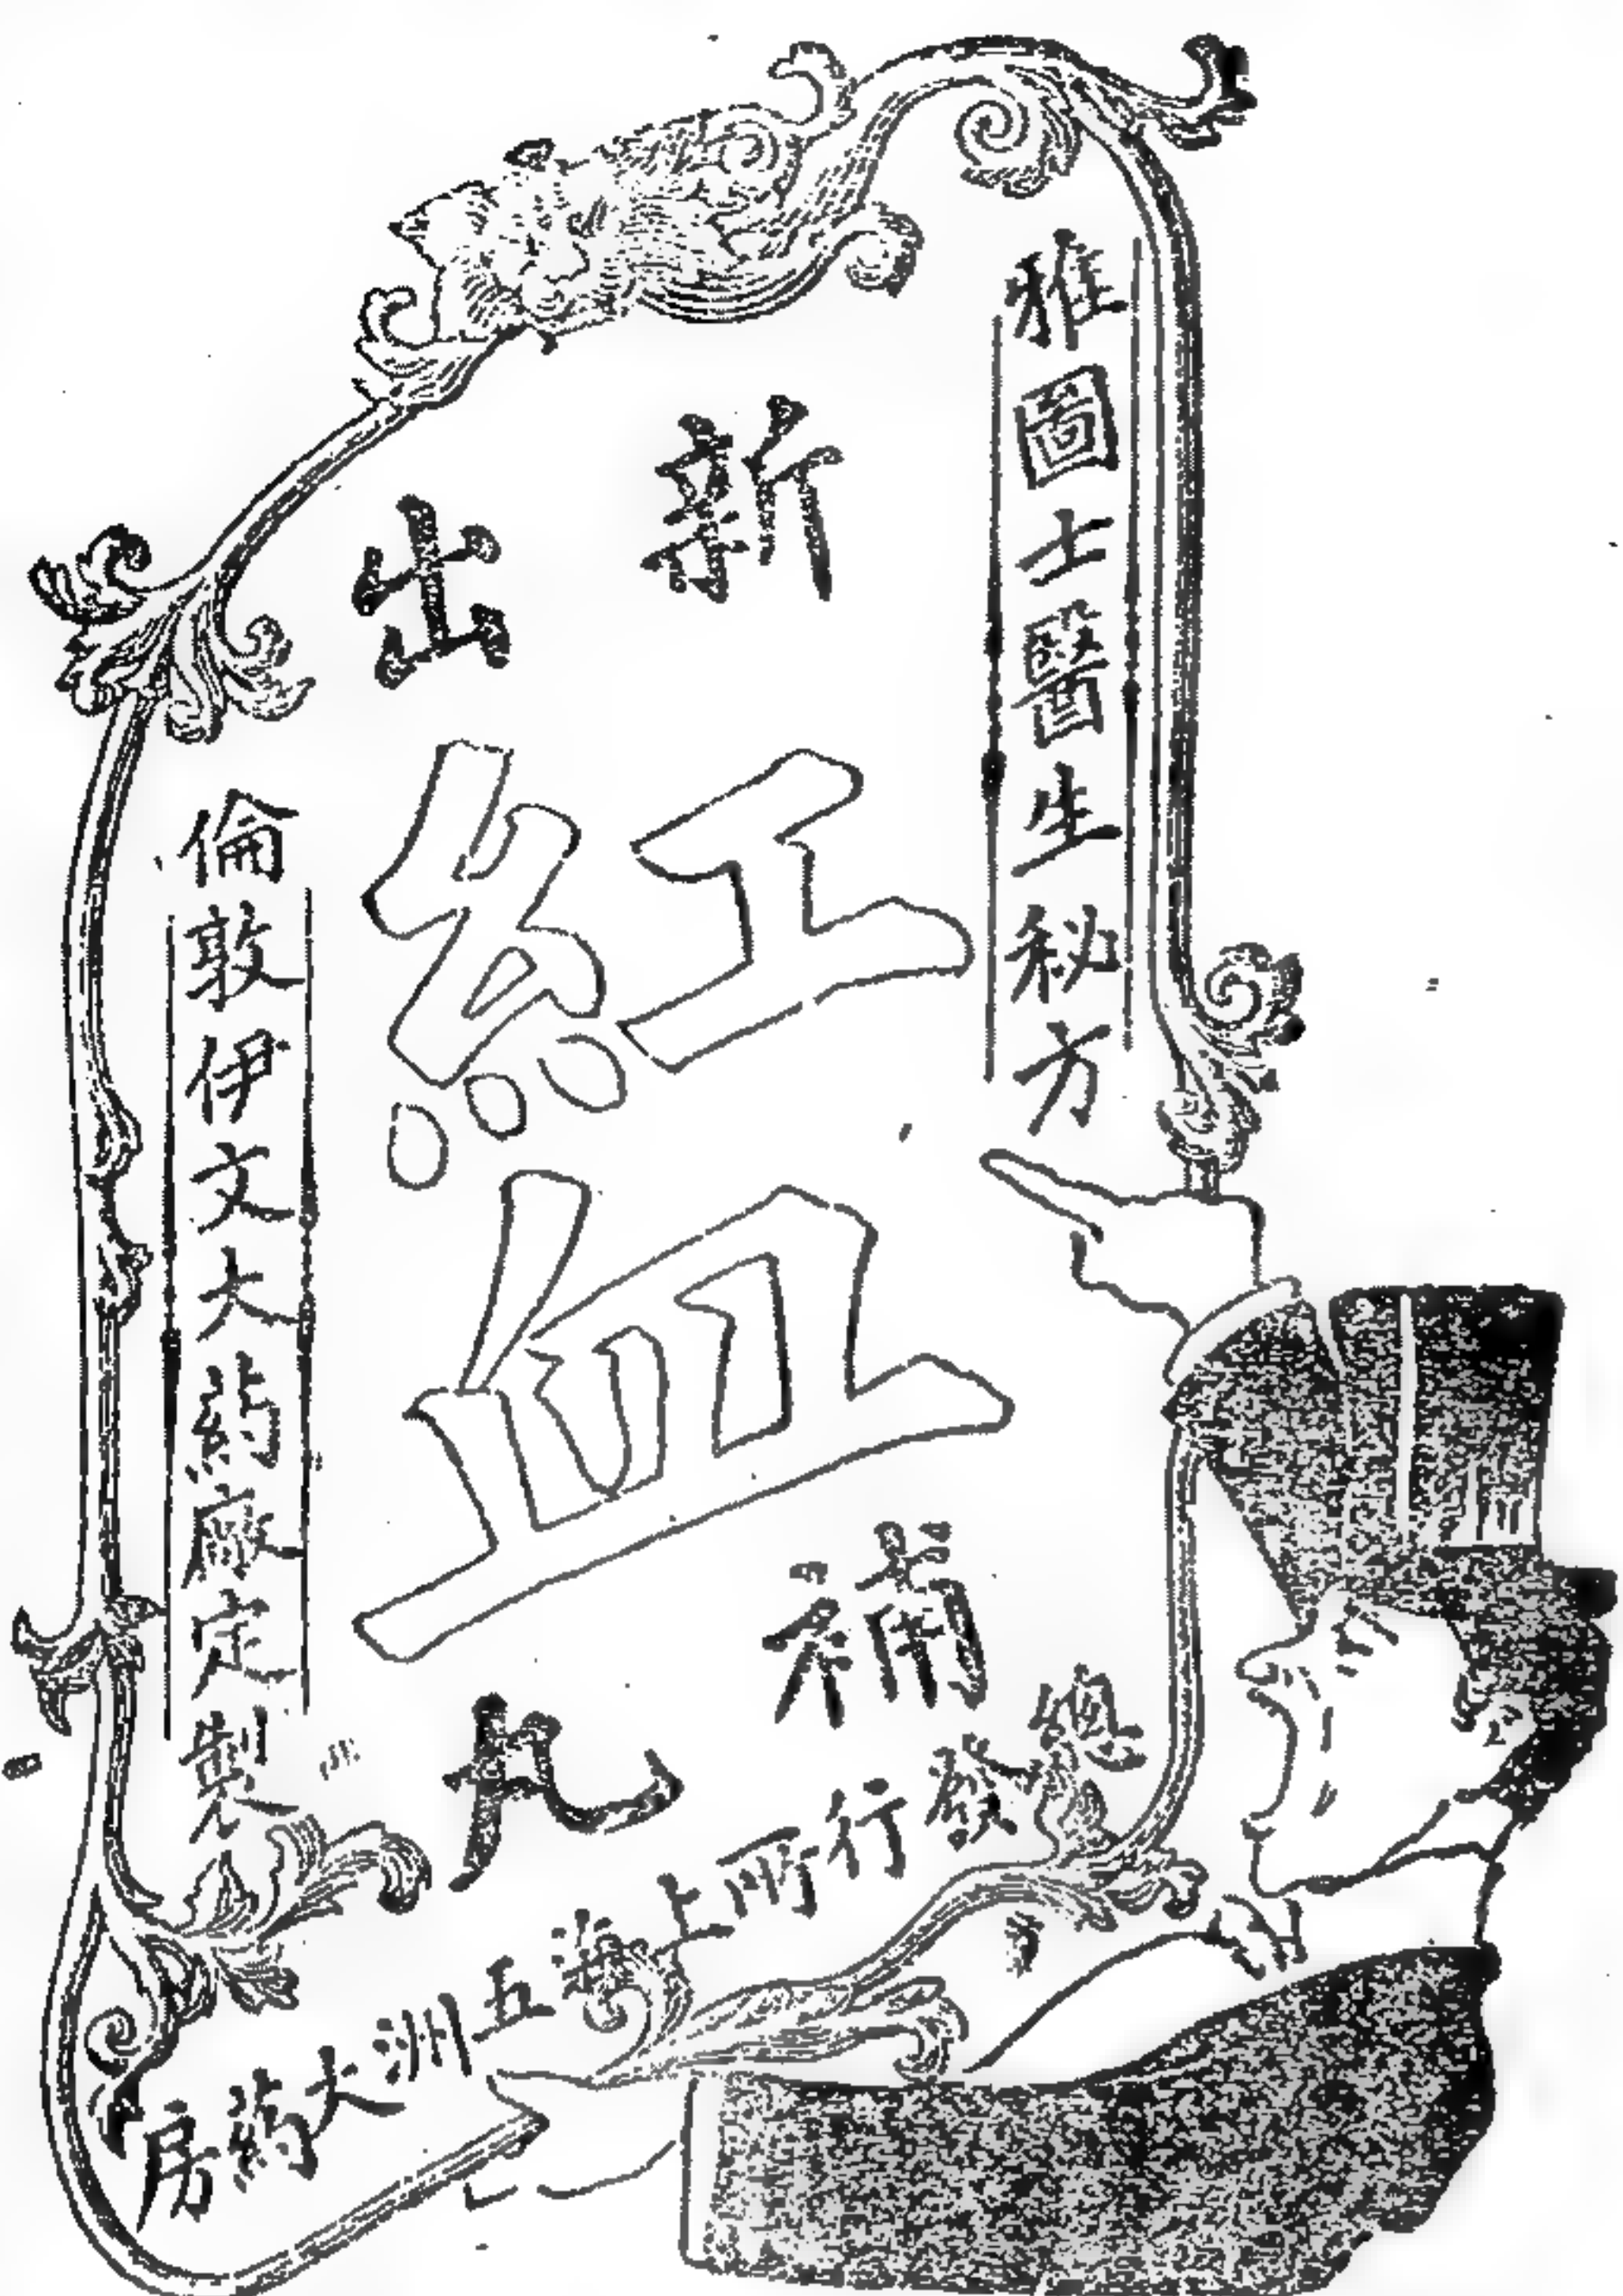 雅圖士醫生秘方
新出
紅
血
補丸
倫敦伊文大葯廠定製
總發行所上海五洲大葯房